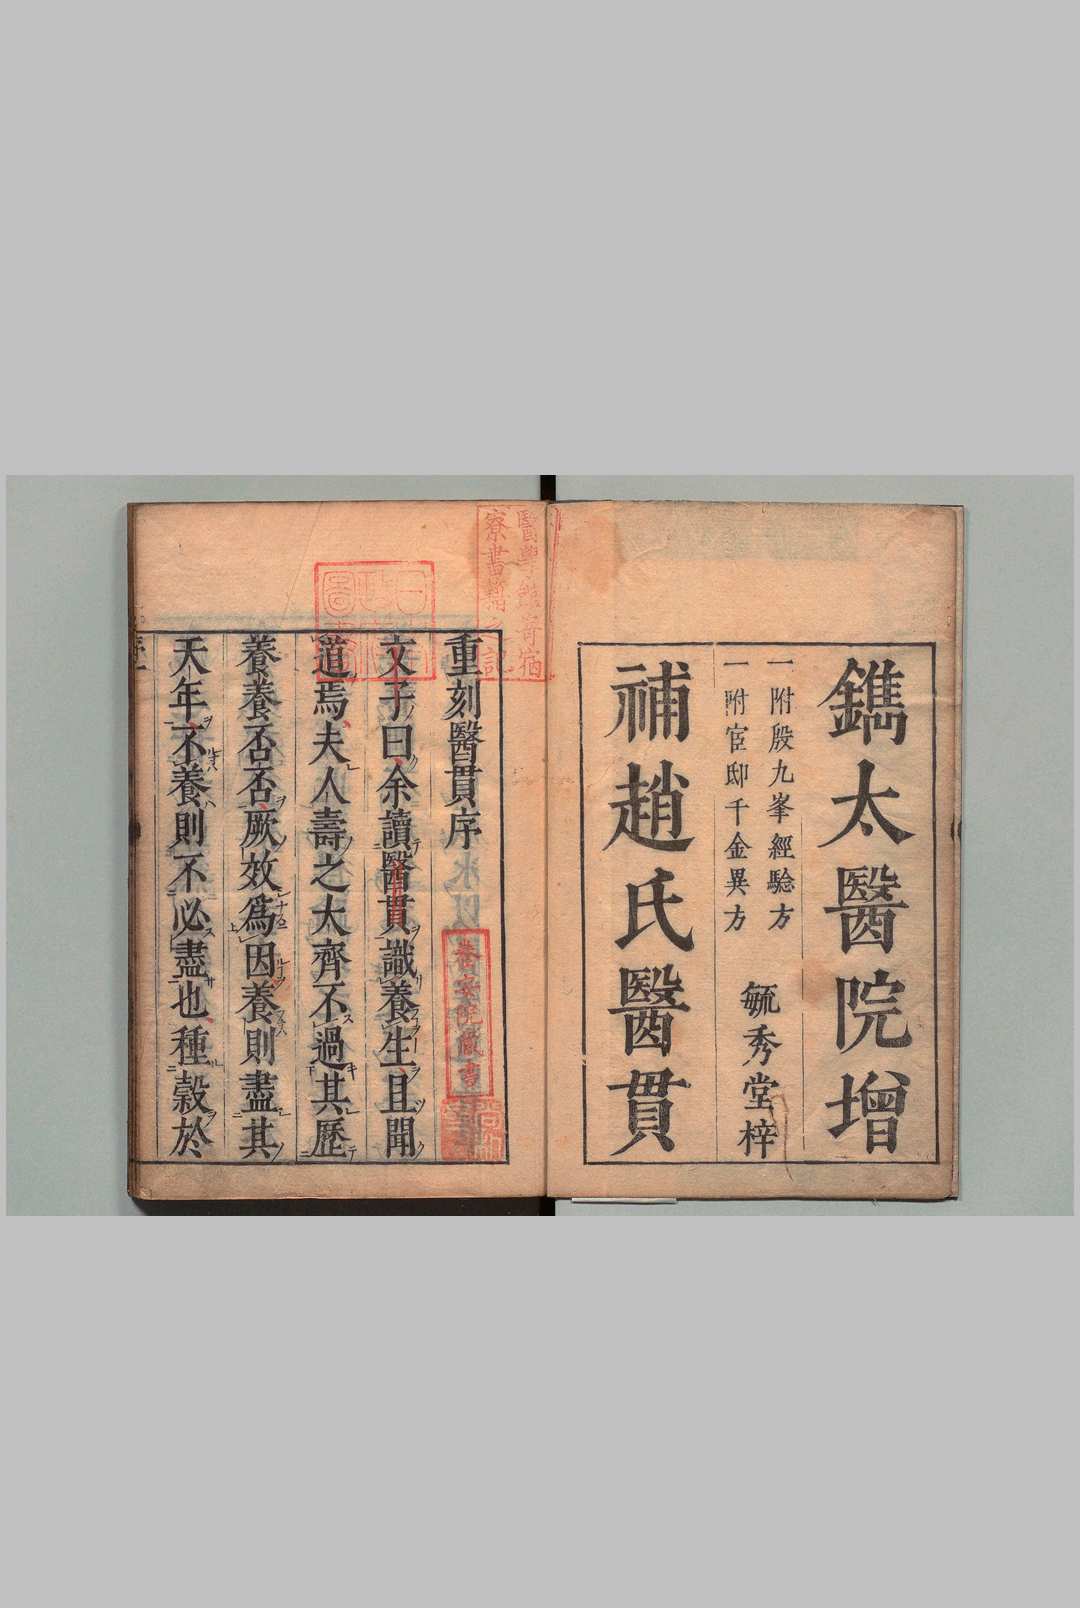 鐫太醫院增
一附殷九峯經驗方
一附宦邸千金異方
毓秀堂梓
補趙氏醫貫
醫學館寄宿
寮書籍之記
重刻醫貫序
養安院藏書
文子曰余讀醫貫識養生且聞
道焉夫人壽之大齊不過其歷
養養否否厥效爲因養則盡其
天年不養則不必盡也種穀於
序一